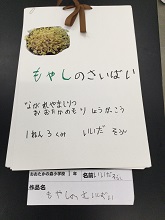 もやしのさいばい
ながれやましりつ
おおたかのもりしょうがっこう
1ねん3くみ いいだ そら
おおたかの森小学校 1年 名前 いいだそら
作品名
もやしのさいばい